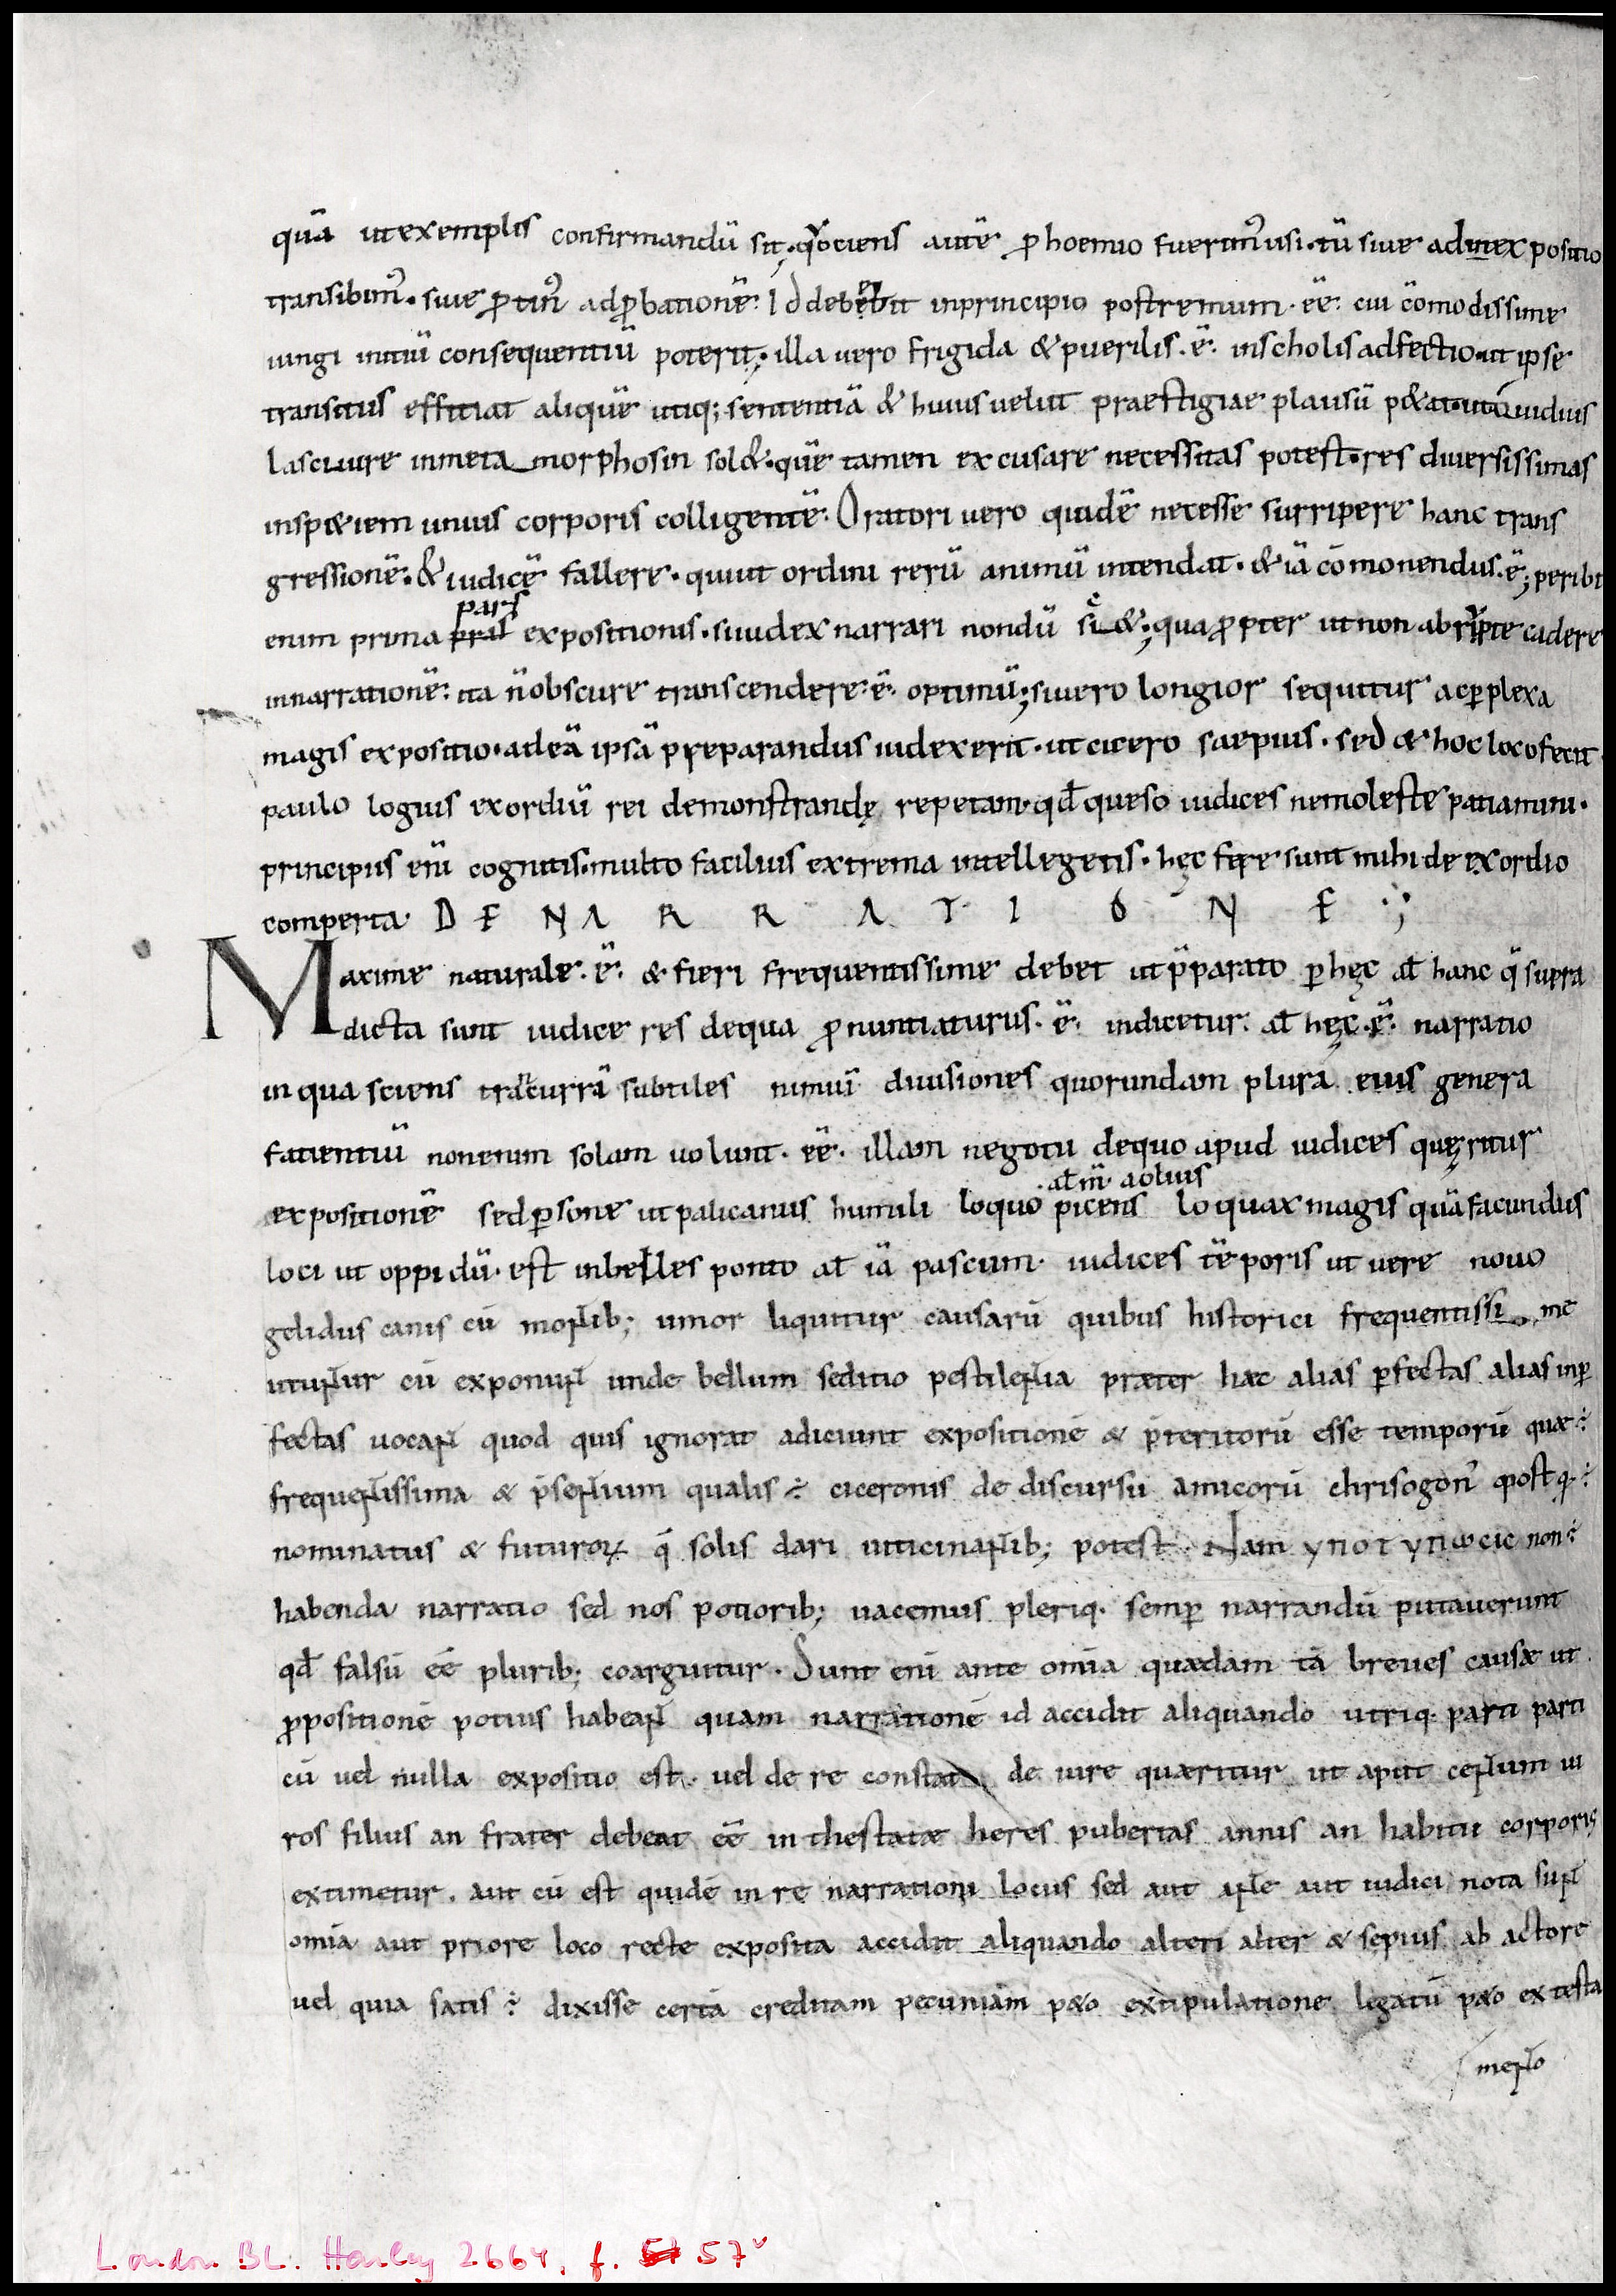 quā ut exemplis confirmandū sit. quociens autē ꝓhoemio fuerimꝰ usi. tū siue ad inexpositio
transibimꝰ. siue ꝓtinꝰ ad ꝓbationē. Id debebit in principio postremum. eē. cui cōmodissime
iungi initiū consequentiū poterit; illa uero frigida & puerilis. ē. in scholis adfectio. ut ipse
transitus effitiat aliquē utiq; sententiā & huius uelut praestigiae plausū p&at. ut ouidius
lasciuire in meta morphosin sol&. quē tamen excusare necessitas potest. res diuersissimas
in sp&iem unius corporis colligentē. Oratori uero quidē necesse surripere hanc trans
gressionē. & iudicē fallere. qui ut ordini rerū animū intendat. & iā cōmonendus. ē; peribit
pars
enim prima pras expositionis. si iudex narrari nondū sci&; qua ꝓpter ut non abrupte cadere
in narrationē. ita n̄ obscure transcendere. ē. optimū; si uero longior sequitur ac ꝑplexa
magis expositio. ad eā ipsā preparandus iudex erit. ut cicero saepius. sed & hoc loco fecit.
paulo logius exordiū rei demonstrandę repetam. qđ queso iudices ne moleste patiamini.
principiis eni cognitis. multo facilius extrema intellegetis. hęc fere sunt mihi de exordio
comperta D E N A R R A T I O N E ;
Maxime naturale. ē. & fieri frequentissime debet ut p̄parato ꝑ hęc at hanc q̄ supra
dicta sunt iudice res de qua ꝓnuntiaturus. ē. indicetur. at hęc. ē. narratio
in qua sciens trācurrā subtiles nimiū diuisiones quorundam plura eius genera
fatientiū non enim solam uolunt. eē. illam negotii de quo apud iudices quęritur
at m̄ aoluis
expositionē sed ꝑsone ut palicanus humili loquo picens loquax magis quā facundus
loci ut oppidū. est in belles ponto at iā pascum. iudices tēporis ut uere nouo
gelidus canis cū montib; umor liquitur causarū quibus historici frequentissi me
utuntur cū exponunt unde bellum seditio pestilentia præter hæc alias ꝑfectas alias inꝑ
fectas uocant quod quis ignorat adiciunt expositionē & p̄teritorū esse temporū quæ ÷
frequentissima & p̄sentium qualis ÷ ciceronis de discursu amicorū chrisogonꝰ postq ÷
nominatus & futuroꝝ q̄ solis dari uiticinantib; potest. Nam ynot ynωcic non ÷
habenda narratio sed nos potiorib; uacemus pleriq. semꝑ narrandū putauerunt
qđ falsū eē plurib; coarguitur. Sunt eni ante omia quædam tā breues causæ ut
ꝓpositionē potius habeant quam narrationē id accidit aliquando utriq. parti parti
cū uel nulla expositio est. uel de re constat de iure quæritur ut aput centum ui
ros filius an frater debeat eē in thestatæ heres pubertas annis an habitu corporis
extimetur. aut cū est quidē in re narrationi locus sed aut ante aut iudici nota sunt
omia aut priore loco recte exposita accidit aliquando alteri alter & sepius ab actore
uel quia satis ÷ dixisse certā creditam pecuniam p&o extipulatione legatū p&o ex testa
mento
London BL. Harley 2664, f. 57v